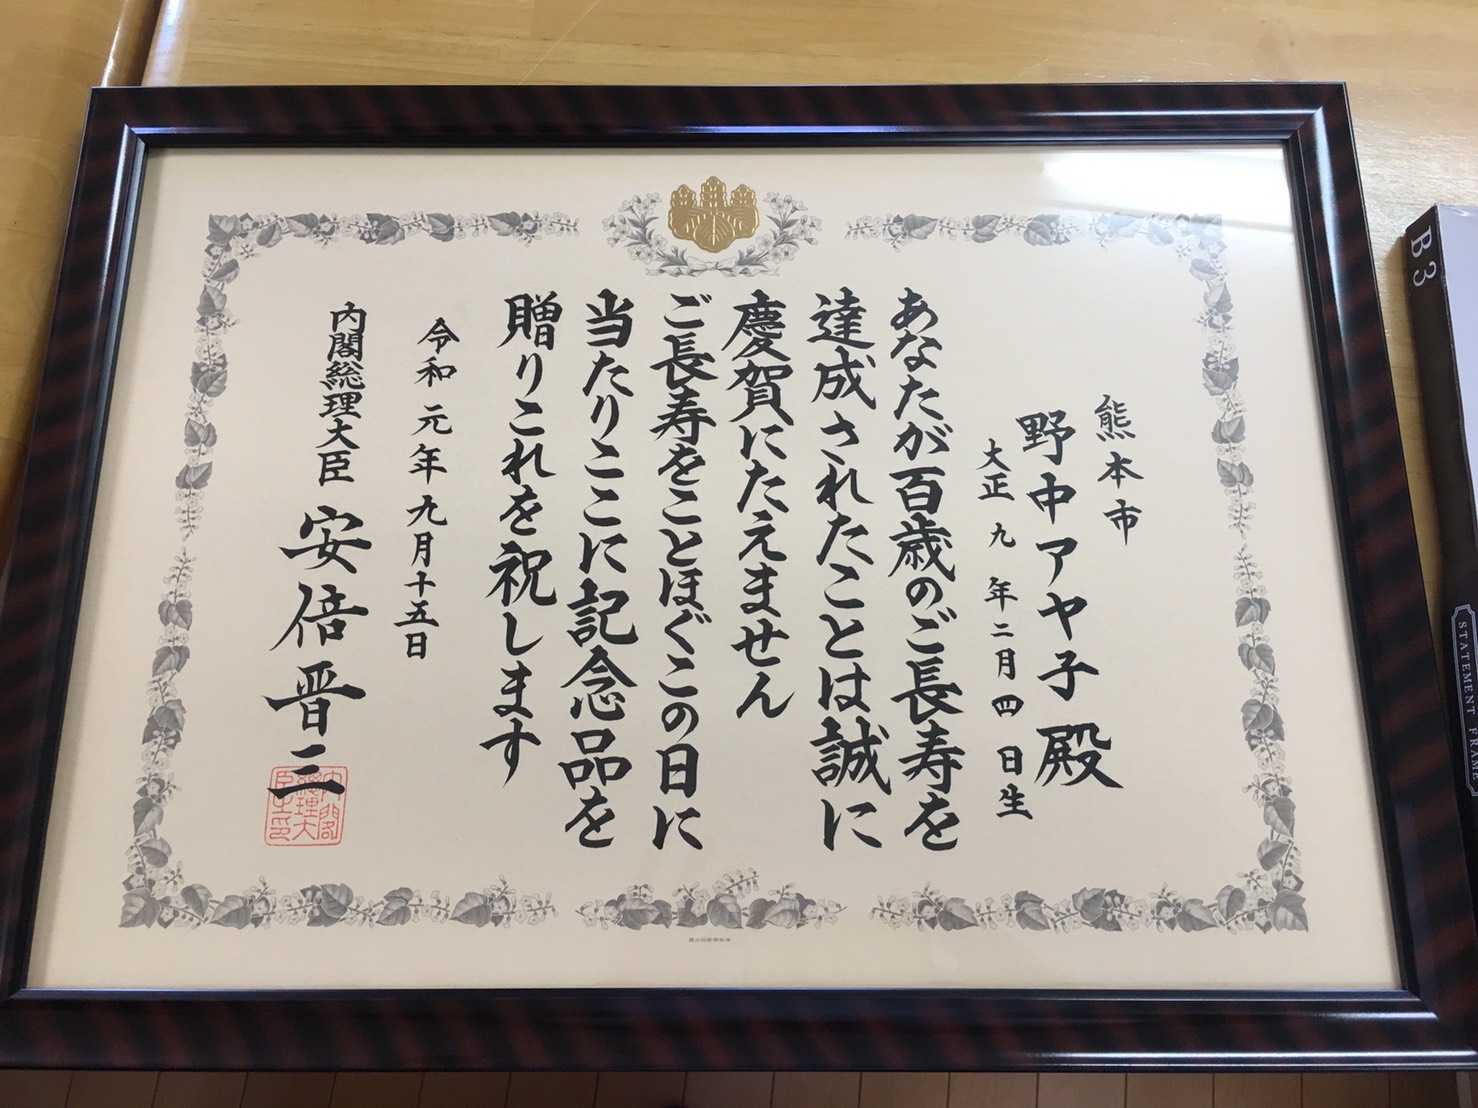 熊本市
野中アヤ子殿
大正九年二月四日生
あなたが百歳のご長寿を
達成されたことは誠に
慶賀にたえません
ご長寿をことほぐこの日に
当たりここに記念品を
贈りこれを祝します
令和元年九月十五日
内閣総理大臣 安倍晋三
内閣総理大臣之印
B3
STATEMENT FRAME